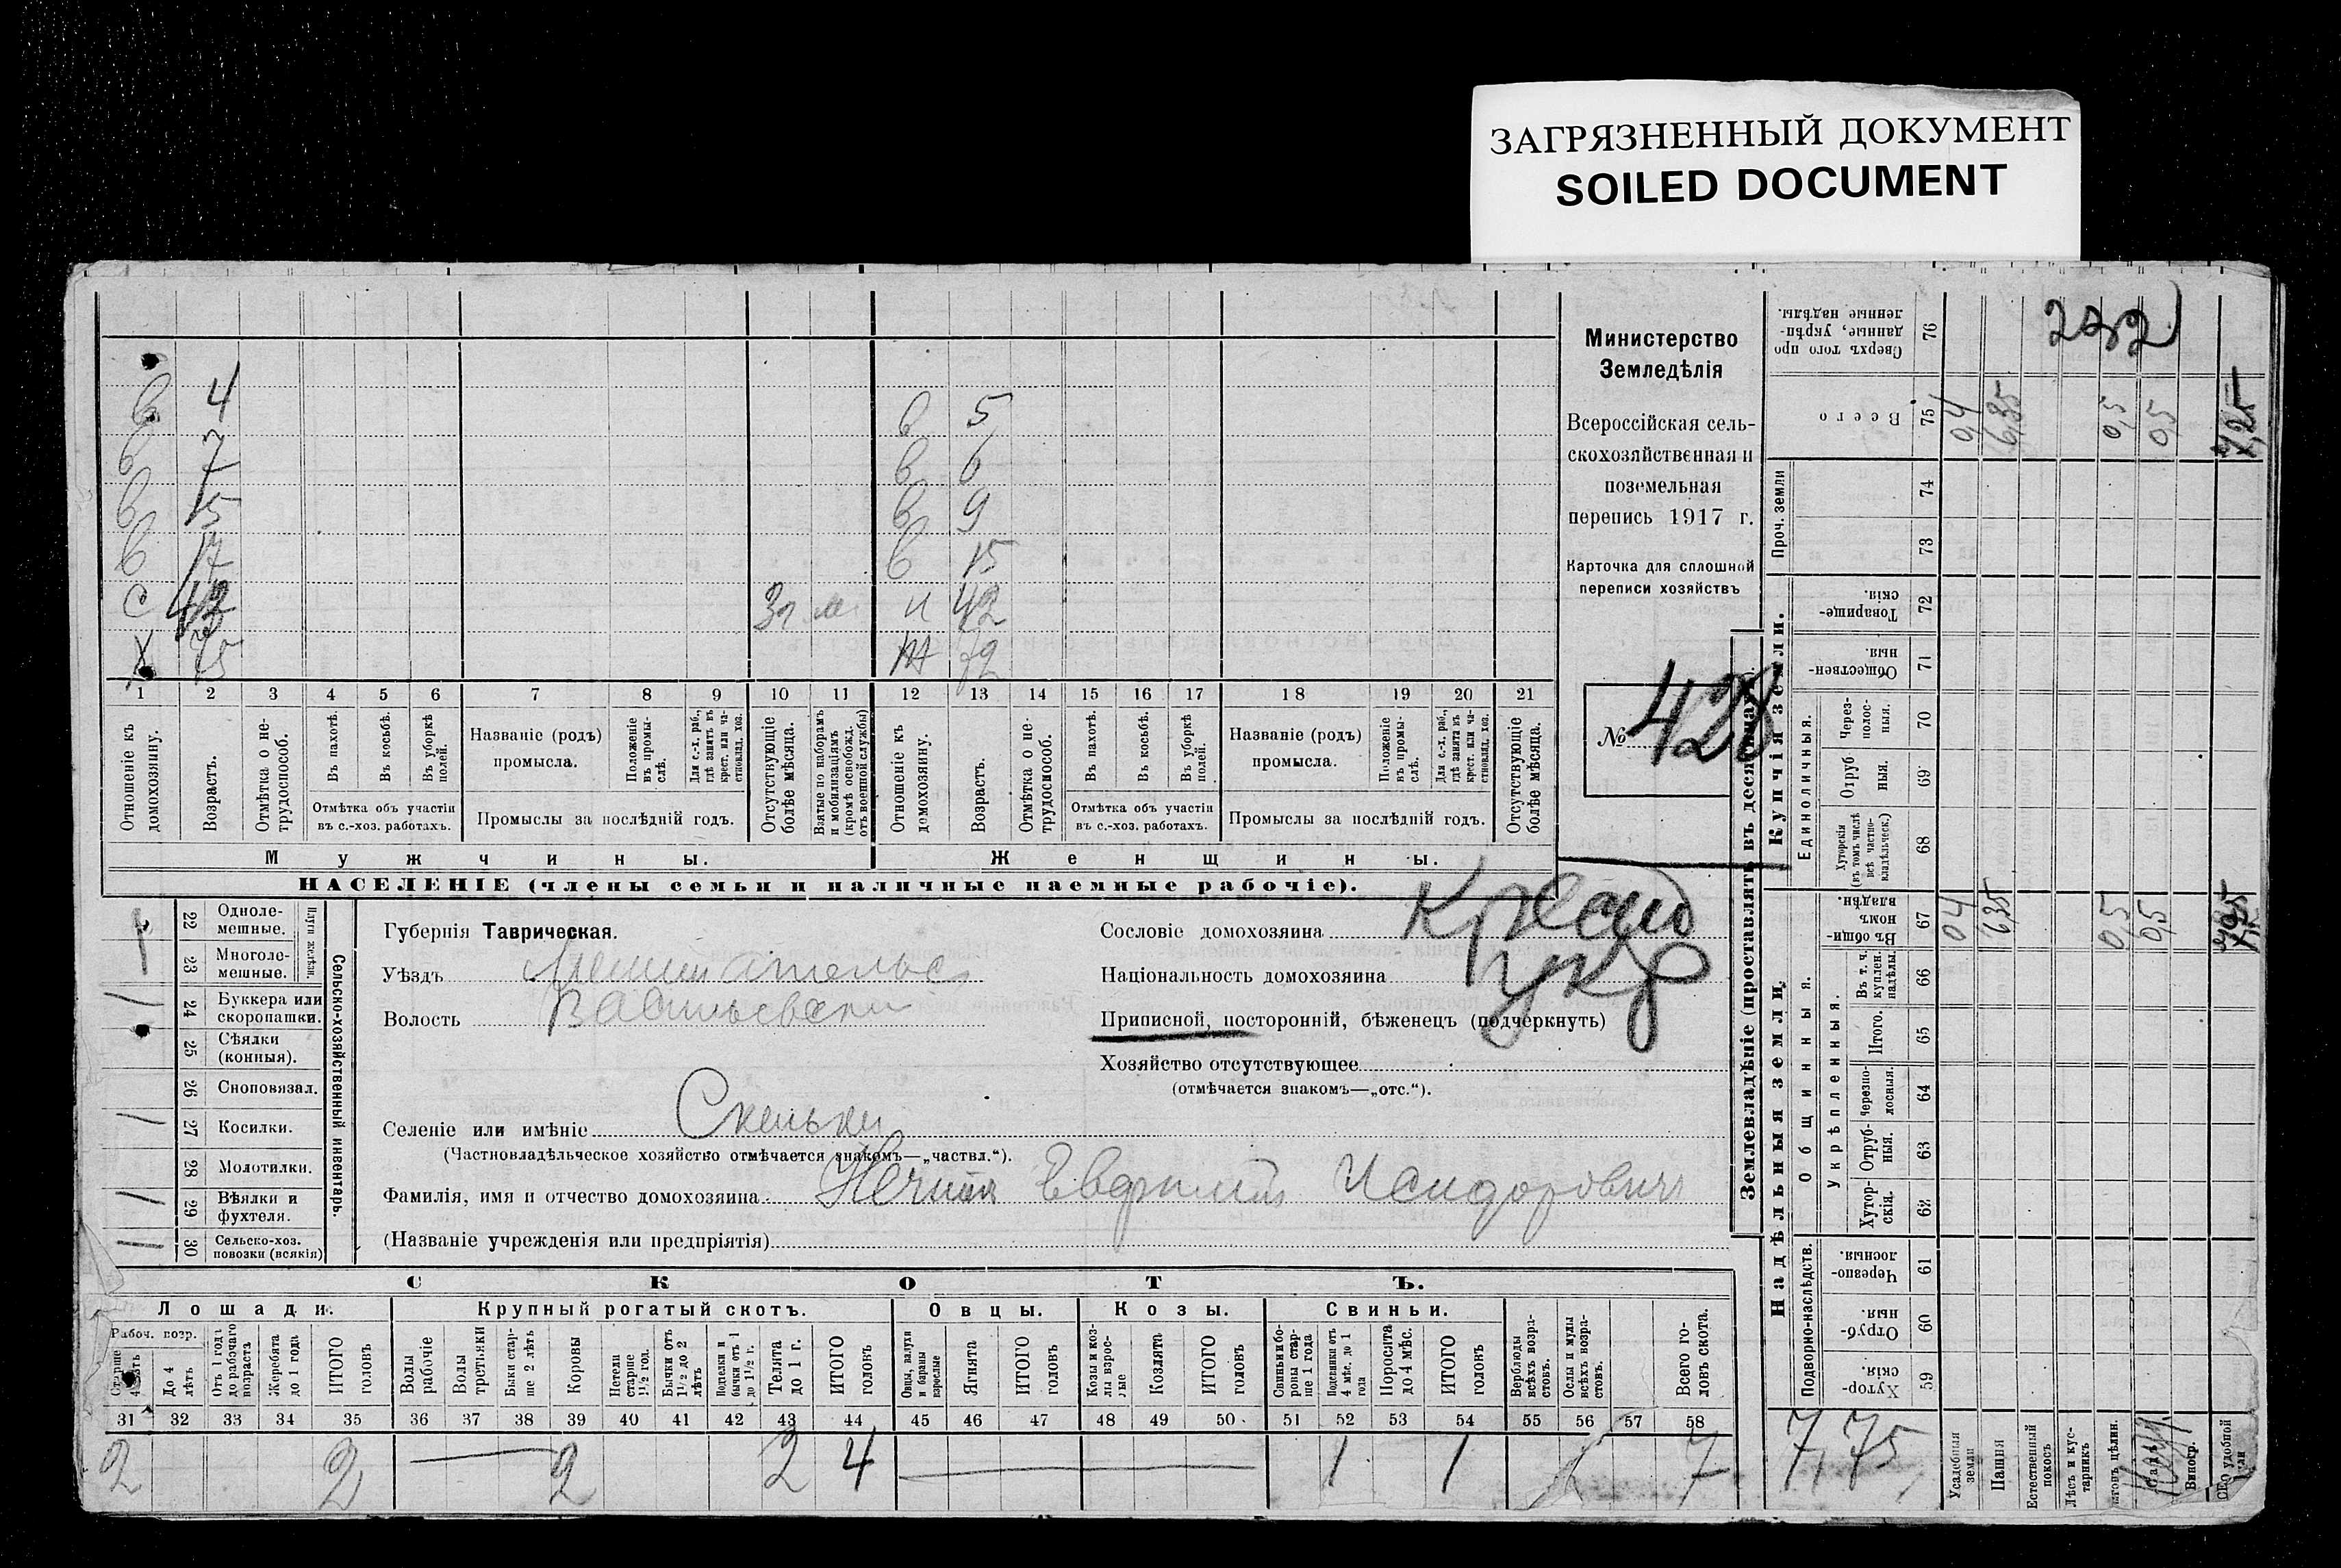 ЗАГРЯЗНЕННЫЙ ДОКУМЕНТ
SOILED DOCUMENT
в 4 в 5
в 7 в 6
в 15 в 9
в 17 в 15
с 42 и 42
Х 75 72
1 2 3 4 5 6 7 8 9 10 11 12 13 14 15 16 17 18 19 20 21
Отношеніе къ домохозяину.
Возрастъ.
Отмѣтка о нетрудоспособ.
Въ пахотѣ.
Въ косьбѣ.
Въ уборкѣ полей.
Отмѣтка объ участіи
въ с.-хоз. работахъ.
Названіе (родъ)
промысла.
Положеніе въ промыслѣ.
Для с.-х. раб., гдѣ занятъ въ крест. или частновлад. хоз.
Промыслы за послѣдній годъ.
Отсутствующіе болѣе мѣсяца.
Взятые по наборамъ и мобилизаціямъ (кромѣ освобожд. отъ военной службы)
Отношеніе къ домохозяину.
Возрастъ.
Отмѣтка о нетрудоспособ.
Въ пахотѣ.
Въ косьбѣ.
Въ уборкѣ полей.
Отмѣтка объ участіи
въ с.-хоз. работахъ.
Названіе (родъ)
промысла.
Положеніе въ промыслѣ.
Для с.-х. раб., гдѣ занята въ крест. или частновлад. хоз.
Промыслы за послѣдній годъ.
Отсутствующіе болѣе мѣсяца.
Мужчины.
Женщины.
НАСЕЛЕНІЕ (члены семьи и наличные наемные рабочіе).
Министерство
Земледѣлія
Всероссійская сель-
скохозяйственная и
поземельная
перепись 1917 г.
Карточка для сплошной
переписи хозяйствъ
№ 428
22 Одноле-
мешные.
23 Многоле-
мешные.
24 Буккера или
скоропашки.
25 Сѣялки
(конныя).
26 Сноповязал.
27 Косилки.
28 Молотилки.
29 Вѣялки и
фухтеля.
30 Сельско-хоз.
повозки (всякія)
Сельско-хозяйственный инвентарь.
Губернія Таврическая.
Уѣздъ
Волость Васильевская
Селеніе или имѣніе Скельки
(Частновладѣльческое хозяйство отмѣчается знакомъ—„частвл.“).
Фамилія, имя и отчество домохозяина Исидоровичъ
(Названіе учрежденія или предпріятія)
Сословіе домохозяина
Національность домохозяина укр
Приписной, посторонній, бѣженецъ (подчеркнуть)
Хозяйство отсутствующее
(отмѣчается знакомъ—„отс.“).
СКОТЪ.
Лошади.
Крупный рогатый скотъ.
Овцы.
Козы.
Свиньи.
Рабоч. возр.
Старше 4 лѣтъ
До 4 лѣтъ
Отъ 1 года до рабочаго возраста
Жеребята до 1 года
ИТОГО головъ
Волы рабочіе
Волы третьяки
Быки старше 2 лѣтъ
Коровы
Нетели старше 1½ год.
Бычки отъ 1½ до 2 лѣтъ
Подтелки и бычки отъ 1 до 1½ г.
Телята до 1 г.
ИТОГО головъ
Овцы, валухи и бараны взрослые
Ягнята
ИТОГО головъ
Козы и козлы взрослые
Козлята
ИТОГО головъ
Свиньи боровы старше 1 года
Подсвинки отъ 4 мѣс. до 1 года
Поросята до 4 мѣс.
ИТОГО головъ
Верблюды всѣхъ возрастовъ.
Ослы и мулы всѣхъ возрастовъ.
Всего головъ скота.
31 32 33 34 35 36 37 38 39 40 41 42 43 44 45 46 47 48 49 50 51 52 53 54 55 56 57 58
2 2 2 2 4 1 1 7
Землевладѣніе (проставлять въ десятинахъ).
Купчія земли.
Надѣльныя земли.
Сверхъ того проданные, укрѣпленные надѣлы. 76
Всего 75 0,4 6,35 0,5 0,5
Проч. земли 74 73
Товарищескія. 72
Общественныя. 71
Единоличныя.
Черезполосныя. 70
Отрубныя. 69
Хуторскія (въ томъ числѣ всѣ частновладѣльческ.) 68
Въ общинномъ владѣн. 67 04 6,35 0,5 0,5
Общинныя.
Укрѣпленныя.
Въ т. ч. куплен. надѣлы. 66
Итого. 65
Черезполосныя. 64
Отрубныя. 63
Хуторскія. 62
Подворно-наслѣдств.
Черезполосныя 61
Отрубныя. 60
Хуторскія. 59
7,75
Усадебныя земли
Пашня
Естественный покосъ
Лѣсъ и кустарникъ
Виногр.